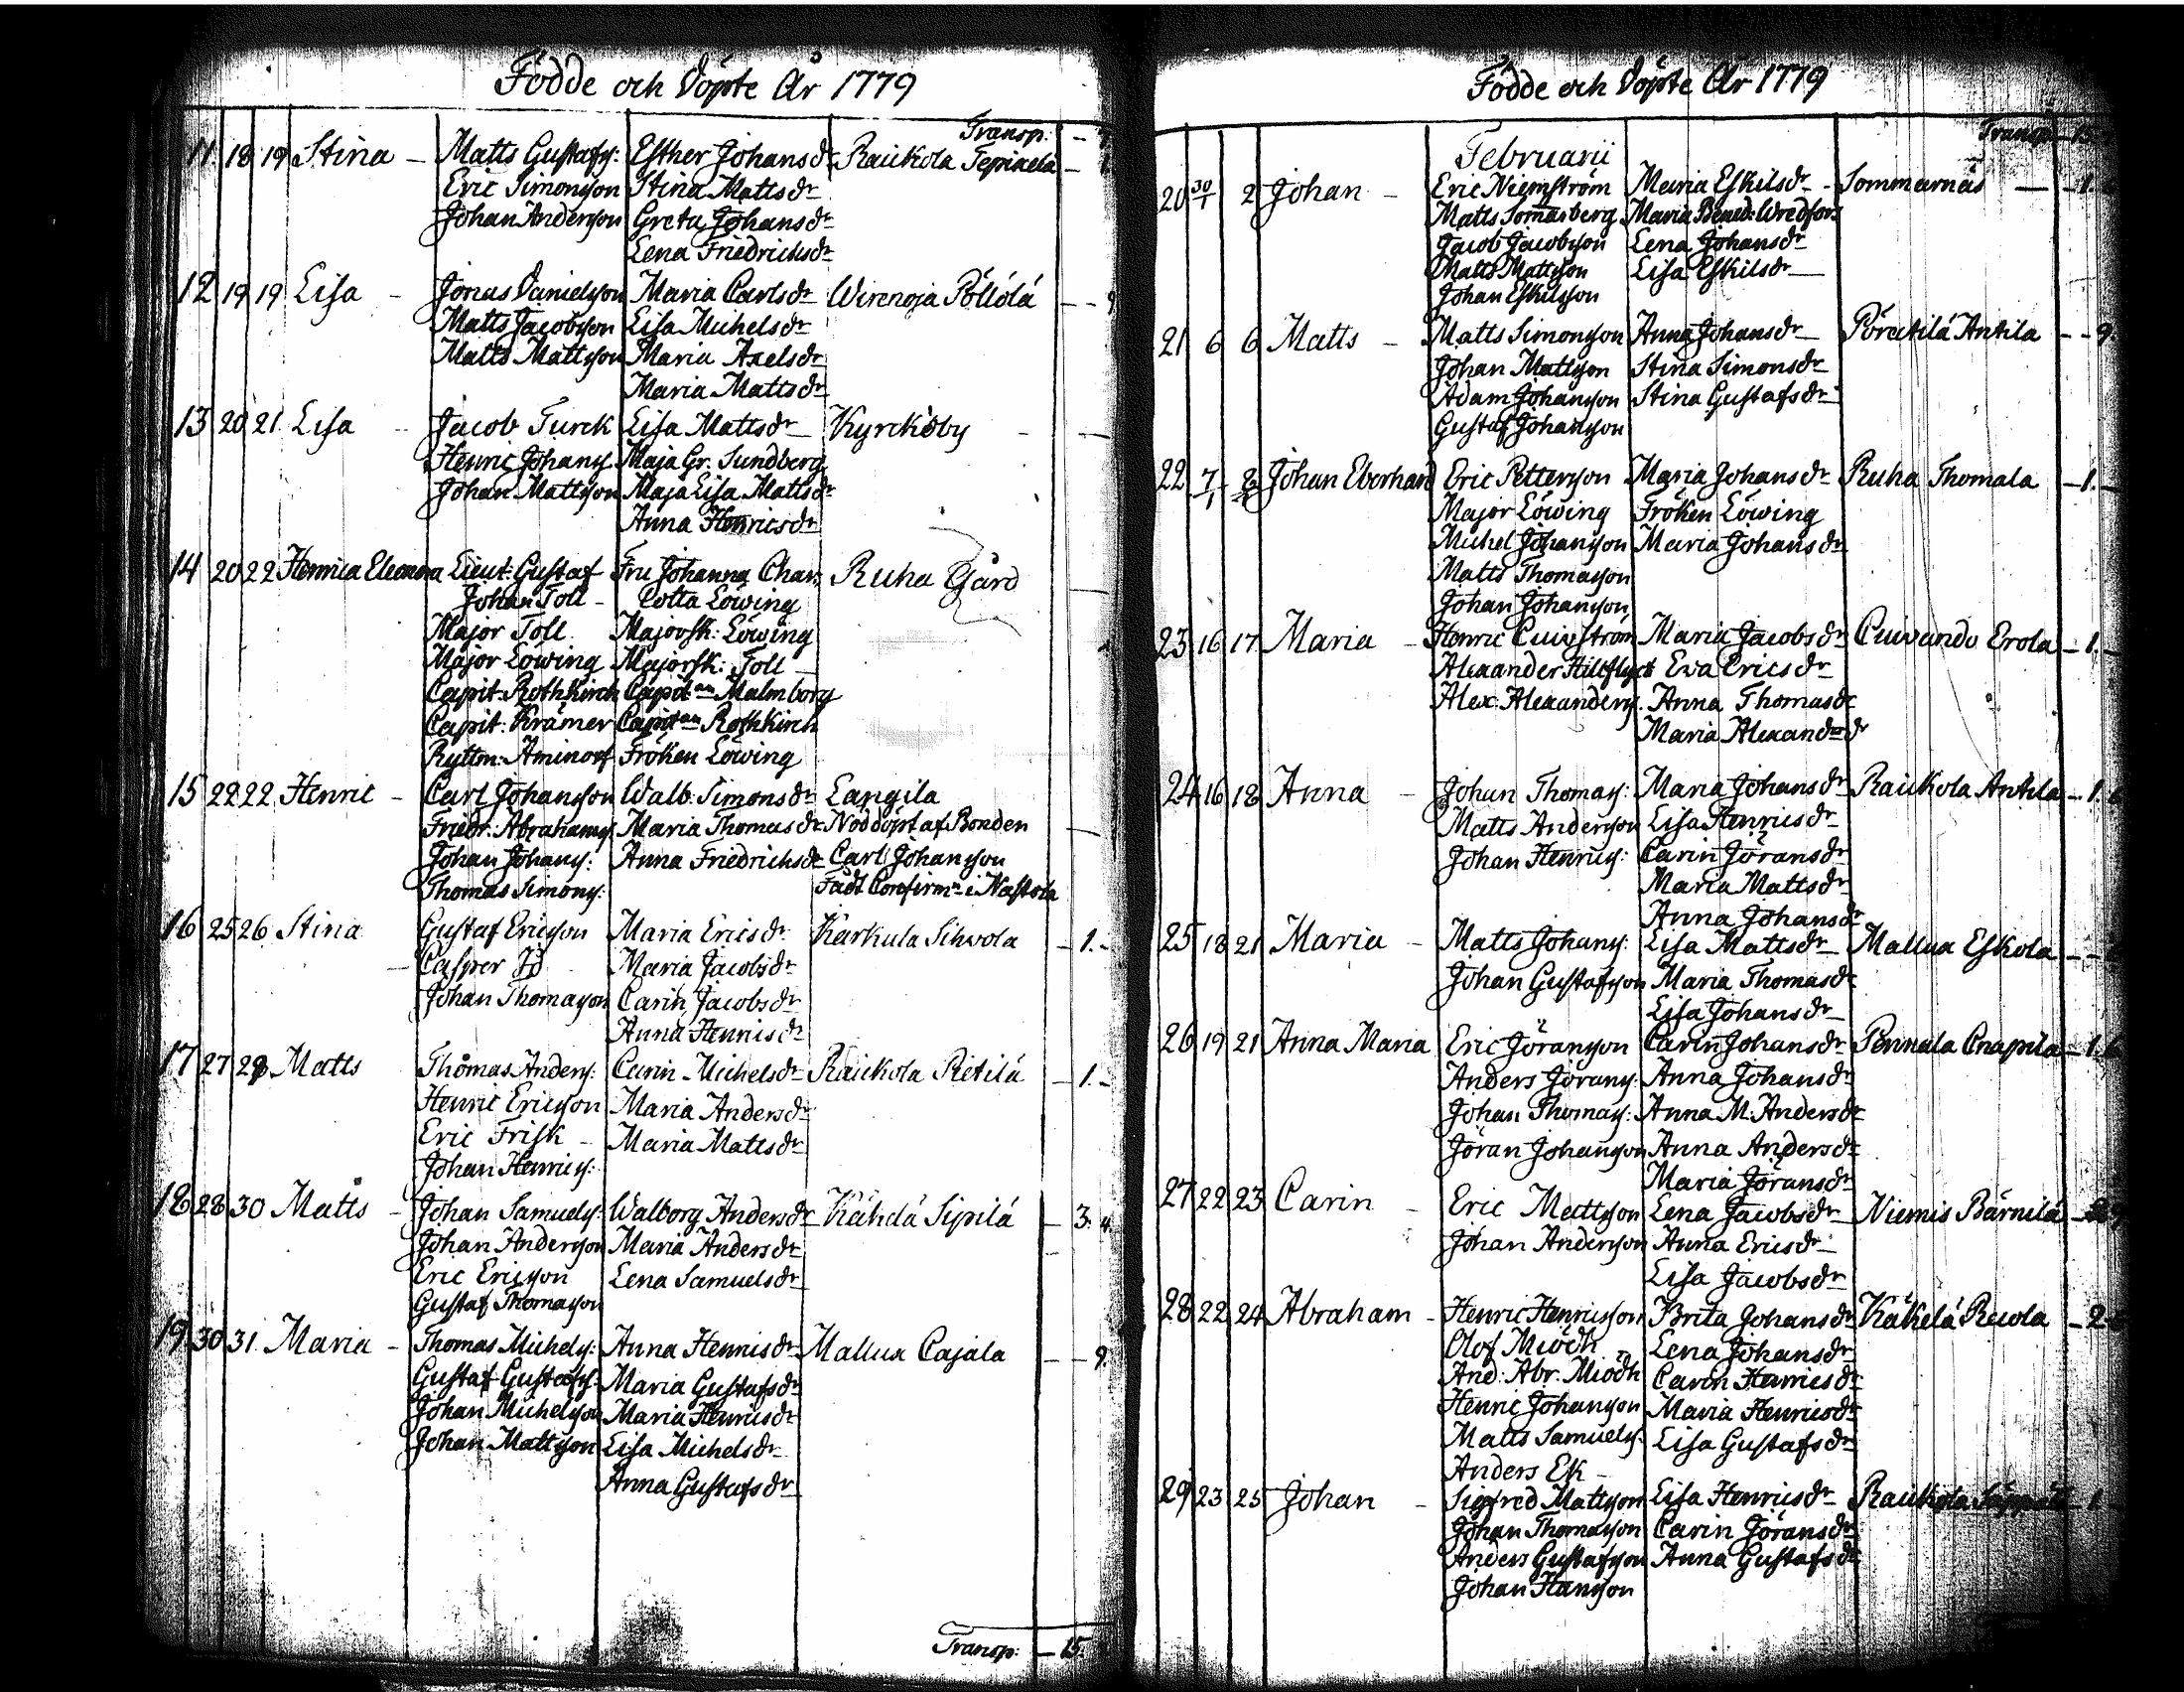 Födde och Döpte År 1779
Transp:
11. 18 19 Stina – Matts Gustafs: Esther Johansdr Raickola Tepiaela
Eric Simonsson Stina Mattsdr
Johan Andersson Greta Johansdr
Lena Friedrichsdr
12 19 19 Lisa – Jonas Danielsson Maria Carlsdr Wirenoja Pöllölä – – 9
Matts Jacobsson Lisa Michelsdr
Matts Mattsson Maria Axelsdr
Maria Mattsdr
13 20 21 Lisa – Jacob Turck Lisa Mattsdr Kyrckoby –
Henric Johans. Maja Gr. Sundberg
Johan Mattsson Maja Lisa Mattsdr
Anna Henricsdr
14 20 22 Henrica Eleonora Lieut: Gustaf Fru Johanna Char: Ruha Gård
Johan Toll – Lotta Löwing
Major Toll Majorsk: Löwing
Major Löwing Majorsk: Toll –
Capit: Rothkirch Capit:an Malmborg
Capit: Krämer Capit:an Rothkirch
Ryttm: Aminoff Fröken Löwing
15 22 22 Henric – Carl Johansson Walb: Simonsdr Langila
Friedr: Abrahams. Maria Thomasdr Nöddöpt af Bonden
Johan Johans: Anna Friedrichsdr Carl Johansson
Thomas Simons: Fådt Confirmn i Nastola
16 25 26 Stina Gustaf Ericsson Maria Ericsdr Karkula Sihvola – 1. –
– Casper Maria Jacobsdr
Johan Thomasson Carin Jacobsdr
Anna Henricsdr
17 27 28 Matts Thomas Anders: Carin Michelsdr Raickola Ritilä – 1. –
Henric Ericsson Maria Andersdr
Eric Frisk – Maria Mattsdr
Johan Henrics:
18 28 30 Matts – Johan Samuels: Walborg Andersdr Kähdä Sipilä – 3. 4
Johan Andersson Maria Andersdr
Eric Ericsson Lena Samuelsdr
Gustaf Thomasson
19 30 31 Maria – Thomas Michels: Anna Henricsdr Mallua Cajala – – 9
Gustaf Gustafs. Maria Gustafsdr
Johan Michelsson Maria Henricsdr
Johan Mattsson Lisa Michelsdr
Anna Gustafsdr
Transp: – 15.
Födde och Döpte År 1779
Transp – 15
Februarii
20 30/1 2 Johan – Eric Niemström Maria Eskilsdr – Sommarnäs – – 1.
Matts Somarberg Maria Bened: Wredfors
Jacob Jacobsson Lena Johansdr
Matts Mattsson Lisa Eskilsdr
Johan Eskilsson
21 6 6 Matts – Matts Simonsson Anna Johansdr Pörätilä Antila – – 9.
Johan Mattsson Stina Simonsdr
Adam Johansson Stina Gustafsdr
Gustaf Johansson
22 7/1 Johan Eberhard Eric Pettersson Maria Johansdr Ruha Thomala – 1. –
Major Löwing Fröken Löwing
Michel Johansson Maria Johansdr
Matts Thomasson
Johan Johansson
23 16 17 Maria – Henric Cuivström Maria Jacobsdr Cuivando Erola – 1. –
Alexander Hillflyct Ewa Ericsdr
Alex: Alexanders. Anna Thomasdr
Maria Alexand:dr
24 16 18 Anna – Johan Thomas: Maria Johansdr Raickola Antila – 1. 6
Matts Andersson Lisa Henricsdr
Johan Henrics: Carin Jöransdr
Maria Mattsdr
Anna Johansdr
25 18 21 Maria – Matts Johans: Lisa Mattsdr Mallua Eskola – –
Johan Gustafsson Maria Thomasdr
Lisa Johansdr
26 19 21 Anna Maria Eric Jöransson Carin Johansdr Pennala Cnapila – 1. 6
Anders Jörans: Anna Johansdr
Johan Thomas: Anna M: Andersdr
Jöran Johansson Anna Andersdr
Maria Jöransdr
27 22 23 Carin – Eric Mattsson Lena Jacobsdr Niemis Bärnilä
Johan Andersson Anna Ericsdr
Lisa Jacobsdr
28 22 24 Abraham – Henric Henricsson Brita Johansdr Käkelä Recola – 2
Olof Miödh Lena Johansdr
And: Abr: Miödh Carin Henricsdr
Henric Johansson Maria Henricsdr
Matts Samuels: Lisa Gustafsdr
Anders Ek –
29 23 25 Johan – Sigfred Mattsson Lisa Henricsdr Raickola – 1 –
Johan Thomasson Carin Jöransdr
Anders Gustafsson Anna Gustafsdr
Johan Hansson